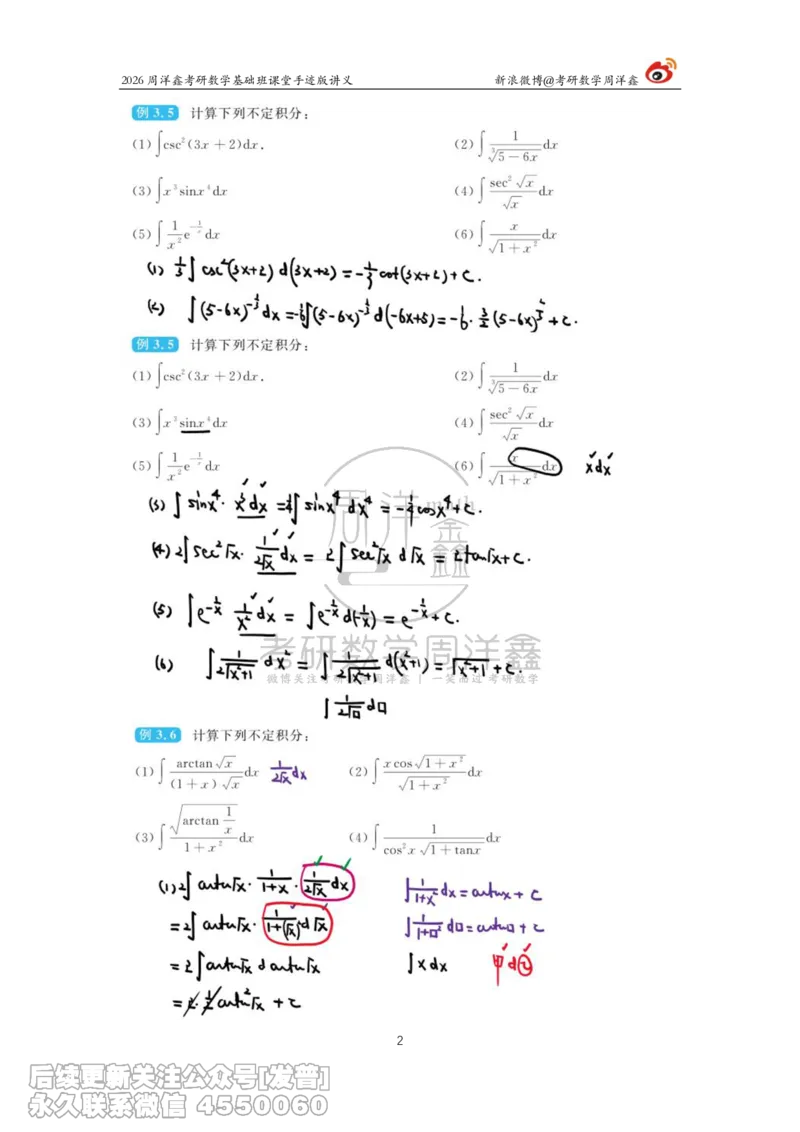 2026 周洋鑫考研数学基础班课堂手迹版讲义 新浪微博@考研数学周洋鑫
例 3.5 计算下列不定积分：
(1) ∫csc²(3x + 2)dx. (2) ∫ 1/∛(5 − 6x) dx
(3) ∫x³ sinx⁴ dx (4) ∫ sec²√x/√x dx
(5) ∫ 1/x² e^(−1/x) dx (6) ∫ x/√(1 + x²) dx
(1) 1/3 ∫ csc²(3x+2) d(3x+2) = −1/3 cot(3x+2) + C.
(2) ∫(5−6x)^(−1/3) dx = −1/6 ∫(5−6x)^(−1/3) d(−6x+5) = −1/6 · 3/2 (5−6x)^(2/3) + C.
例 3.5 计算下列不定积分：
(1) ∫csc²(3x + 2)dx. (2) ∫ 1/∛(5 − 6x) dx
(3) ∫x³ sinx⁴ dx (4) ∫ sec²√x/√x dx
(5) ∫ 1/x² e^(−1/x) dx (6) ∫ x/√(1 + x²) dx x dx
(3) ∫ sinx⁴ · x³dx = 1/4 ∫ sinx⁴ dx⁴ = −1/4 cosx⁴ + C.
(4) 2∫ sec²√x · 1/(2√x) dx = 2∫ sec²√x d√x = 2tan√x + C.
(5) ∫ e^(−1/x) 1/x² dx = ∫ e^(−1/x) d(−1/x) = e^(−1/x) + C.
(6) ∫ 1/(2√(x²+1)) dx² = ∫ 1/(2√(x²+1)) d(x²+1) = √(x²+1) + C.
∫ 1/(2√□) d□
周洋鑫 math
考研数学周洋鑫
微博关注考研数学周洋鑫 | 一笑而过考研数学
例 3.6 计算下列不定积分：
(1) ∫ arctan√x/((1 + x)√x) dx 1/(2√x) dx (2) ∫ xcos√(1 + x²)/√(1 + x²) dx
(3) ∫ √(arctan 1/x)/(1 + x²) dx (4) ∫ 1/(cos²x √(1 + tanx)) dx
(1) 2∫ arctan√x · 1/(1+x) · 1/(2√x) dx ∫ 1/(1+x²) dx = arctanx + C
= 2∫ arctan√x · 1/(1+(√x)²) d√x ∫ 1/(1+□²) d□ = arctan□ + C
= 2∫ arctan√x d arctan√x ∫ x dx 甲d乙
= 2 · 1/2 arctan²√x + C
2
后续更新关注公众号[发普]
永久联系微信 4550060